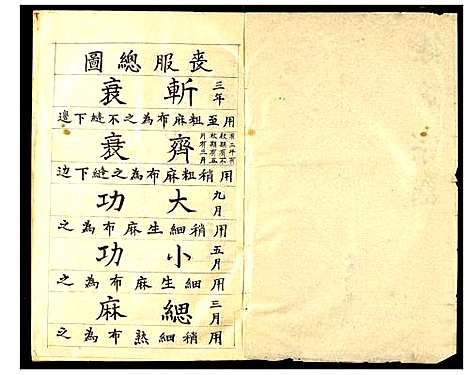 喪服總圖
三年 斬衰
用至粗麻布為之不縫下邊
有三年有杖期有不杖期有五月有三月 齊衰
用稍粗麻布為之縫下边
九月 大功
用稍細生麻布為之
五月 小功
用細生麻布為之
三月 緦麻
用稍細熟布為之